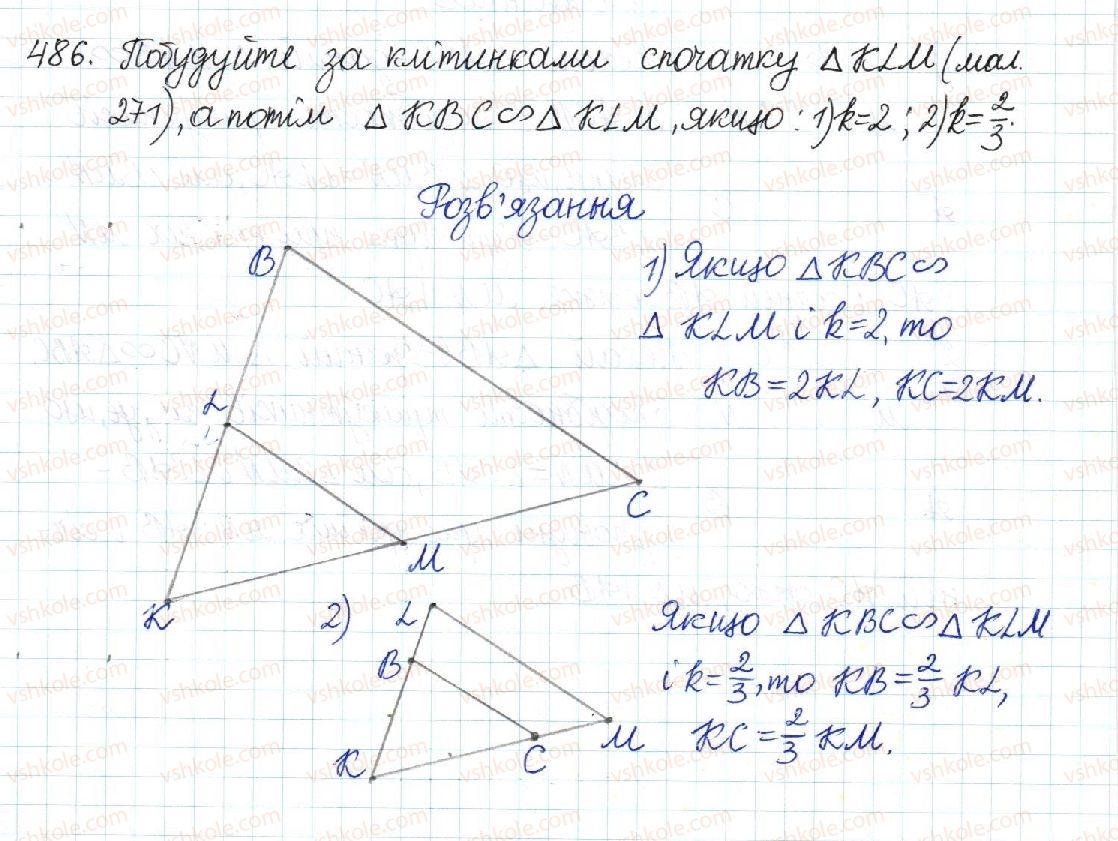 486. Побудуйте за клітинками спочатку △KLM (мал.
271), а потім △KBC∽△KLM, якщо: 1) k=2; 2) k=2/3.
Розв'язання
1) Якщо △KBC∽
△KLM і k=2, то
KB=2KL, KC=2KM.
B
L
C
M
K
2)
Якщо △KBC∽△KLM
і k=2/3, то KB=2/3 KL,
KC=2/3 KM.
L
B
M
C
K
vshkole.com